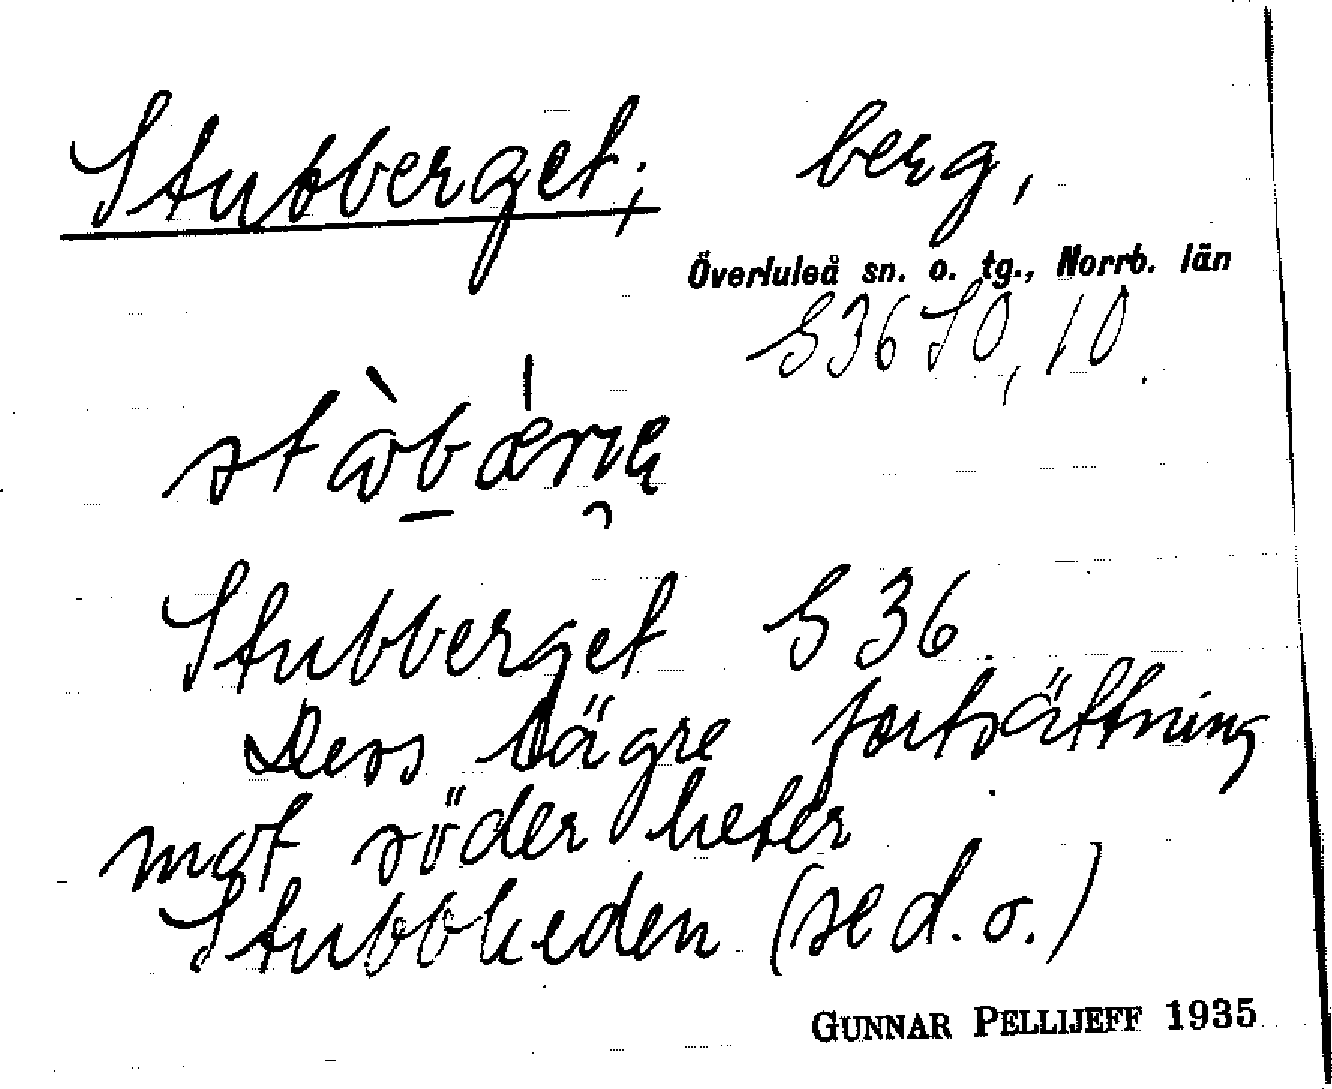 Stubberget; berg,
Överluleå sn. o. tg., Norrb. län
S36 SO, 10.
Stubberget S 36.
Dess lägre fortsättning
mot söder heter
Stubbheden (se d. o.)
GUNNAR PELLIJEFF 1935